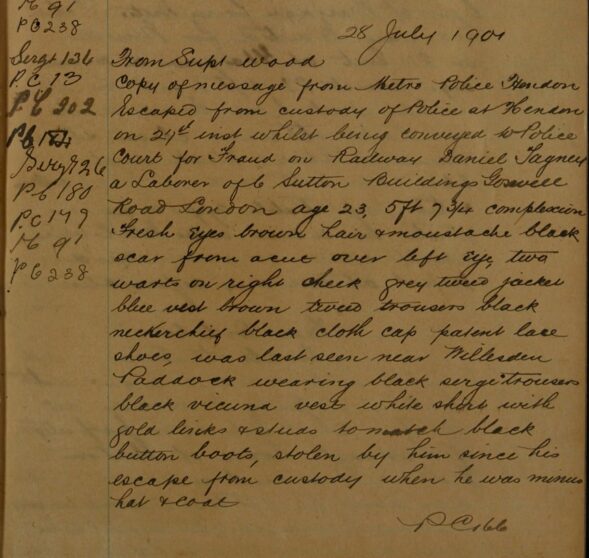 M 91
PC 238
28 July 1901
Sergt 136 From Supt Wood
P.C 13 Copy of message from Metro Police Hendon
P.C 202 Escaped from custody of Police at Hendon
on 27st inst whilst being conveyed to Police
Sergt 26 Court for Fraud on Railway Daniel Tagney
PC 180 a Laborer of 6 Sutton Buildings Goswell
P.C 179 Road London age 23, 5ft 7 complexion
M 91 Fresh Eyes brown hair & moustache black
PC 238 scar from a cut over left Eye, two
warts on right cheek grey tweed jacket
blue vest brown tweed trousers black
neckerchief black cloth cap patent lace
shoes, was last seen near Willesden
Paddock wearing black serge trousers
black vicuna vest white shirt with
gold links & studs to match black
button boots, stolen by him since his
escape from custody when he was minus
hat & coat
PC 166